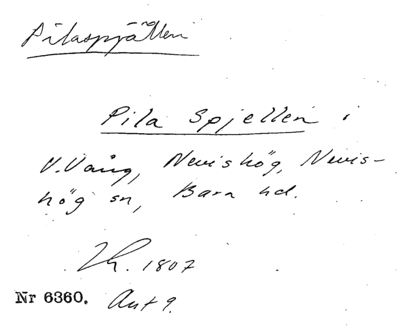 Pilaspjällen
Pila Spjellen i
V. Vång, Nevishög, Nevis-
hög sn, Bara hd.
Lh. 1807
Nr 6360. Akt 9.